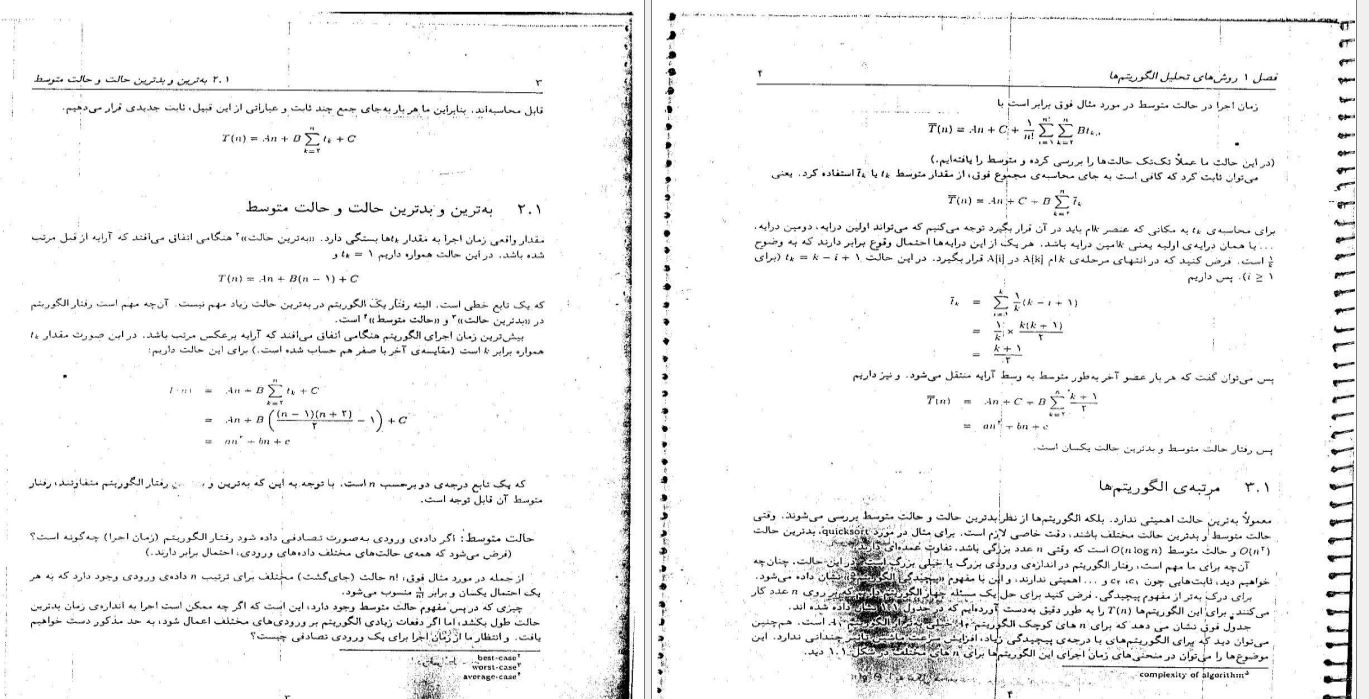 ۲.۱ به‌ترین و بدترین حالت و حالت متوسط
۳
قابل محاسبه‌اند. بنابراین ما هر بار به‌جای جمع چند ثابت و عباراتی از این قبیل، ثابت جدیدی قرار می‌دهیم.
T(n) = An + B ∑_{k=۲}^{n} t_k + C
۲.۱ به‌ترین و بدترین حالت و حالت متوسط
مقدار واقعی زمان اجرا به مقدار t_kها بستگی دارد. «به‌ترین حالت»۲ هنگامی اتفاق می‌افتد که آرایه از قبل مرتب
شده باشد. در این حالت همواره داریم t_k = ۱ و
T(n) = An + B(n − ۱) + C
که یک تابع خطی است. البته رفتار یک الگوریتم در به‌ترین حالت زیاد مهم نیست. آن‌چه مهم است رفتار الگوریتم
در «بدترین حالت»۳ و «حالت متوسط»۴ است.
بیش‌ترین زمان اجرای الگوریتم هنگامی اتفاق می‌افتد که آرایه برعکس مرتب باشد. در این صورت مقدار t_k
همواره برابر k است (مقایسه‌ی آخر با صفر هم حساب شده است.) برای این حالت داریم:
(n) = An + B ∑_{k=۲}^{n} t_k + C
= An + B ( (n − ۱)(n + ۲) / ۲ − ۱ ) + C
= an۲ + bn + c
که یک تابع درجه‌ی دو برحسب n است. با توجه به این که به‌ترین و رفتار الگوریتم متفاوتند، رفتار
متوسط آن قابل توجه است.
حالت متوسط: اگر داده‌ی ورودی به‌صورت تصادفی داده شود رفتار الگوریتم (زمان اجرا) چه‌گونه است؟
(فرض می‌شود که همه‌ی حالت‌های مختلف داده‌های ورودی، احتمال برابر دارند.)
از جمله در مورد مثال فوق، n! حالت (جای‌گشت) مختلف برای ترتیب n داده‌ی ورودی وجود دارد که به هر
یک احتمال یکسان و برابر ۱/n! منسوب می‌شود.
چیزی که در پس مفهوم حالت متوسط وجود دارد، این است که اگر چه ممکن است اجرا به اندازه‌ی زمان بدترین
حالت طول بکشد، اما اگر دفعات زیادی الگوریتم بر ورودی‌های مختلف اعمال شود، به حد مذکور دست خواهیم
یافت. و انتظار ما از زمان اجرا برای یک ورودی تصادفی چیست؟
best-case۲
worst-case۳
average-case۴
۳
فصل ۱ روش‌های تحلیل الگوریتم‌ها
۴
زمان اجرا در حالت متوسط در مورد مثال فوق برابر است با
T̅(n) = An + C + ۱/n! ∑_{i=۱}^{n!} ∑_{k=۲}^{n} Bt_{k,i}
(در این حالت ما عملاً تک‌تک حالت‌ها را بررسی کرده و متوسط را یافته‌ایم.)
می‌توان ثابت کرد که کافی است به جای محاسبه‌ی مجموع فوق، از مقدار متوسط t_k یا t̅_k استفاده کرد. یعنی
T̅(n) = An + C + B ∑_{k=۲}^{n} t̅_k
برای محاسبه‌ی t_k به مکانی که عنصر kام باید در آن قرار بگیرد توجه می‌کنیم که می‌تواند اولین درایه، دومین درایه،
... یا همان درایه‌ی اولیه یعنی kامین درایه باشد. هر یک از این درایه‌ها احتمال وقوع برابر دارند که به وضوح
۱/k است. فرض کنید که در انتهای مرحله‌ی kام A[k] در A[i] قرار بگیرد. در این حالت t_k = k − i + ۱ (برای
i ≥ ۱). پس داریم
t̅_k = ∑_{i=۱}^{k} ۱/k (k − i + ۱)
= ۱/k × k(k + ۱)/۲
= (k + ۱)/۲
پس می‌توان گفت که هر بار عضو آخر به‌طور متوسط به وسط آرایه منتقل می‌شود. و نیز داریم
T̅(n) = An + C + B ∑_{k=۲}^{n} (k + ۱)/۲
= an۲ + bn + c
پس رفتار حالت متوسط و بدترین حالت یکسان است.
۳.۱ مرتبه‌ی الگوریتم‌ها
معمولاً به‌ترین حالت اهمیتی ندارد. بلکه الگوریتم‌ها از نظر بدترین حالت و حالت متوسط بررسی می‌شوند. وقتی
حالت متوسط و بدترین حالت مختلف باشند، دقت خاصی لازم است. برای مثال در مورد quicksort، بدترین حالت
O(n۲) و حالت متوسط O(n log n) است که وقتی n عدد بزرگی باشد، تفاوت عمده‌ای دارند.
آن‌چه برای ما مهم است، رفتار الگوریتم در اندازه‌ی ورودی بزرگ یا خیلی بزرگ است. در این حالت، چنان‌چه
خواهیم دید، ثابت‌هایی چون c۱، c۲ و ... اهمیتی ندارند، و این با مفهوم «پیچیدگی الگوریتم»۵ نشان داده می‌شود.
برای درک به‌تر از مفهوم پیچیدگی، فرض کنید برای حل یک مسئله چهار الگوریتم داریم که بر روی n عدد کار
می‌کنند. برای این الگوریتم‌ها T(n) را به طور دقیق به‌دست آورده‌ایم که در جدول نشان داده شده اند.
جدول فوق نشان می دهد که برای n های کوچک الگوریتم الگوریتم است. هم‌چنین
می‌توان دید که برای الگوریتم‌های با درجه‌ی پیچیدگی زیاد، افزایش سرعت ماشین تأثیر چندانی ندارد. این
موضوع‌ها را می‌توان در منحنی‌های زمان اجرای این الگوریتم‌ها برای n های مختلف در شکل ۱.۱ دید.
complexity of algorithm۵
۴